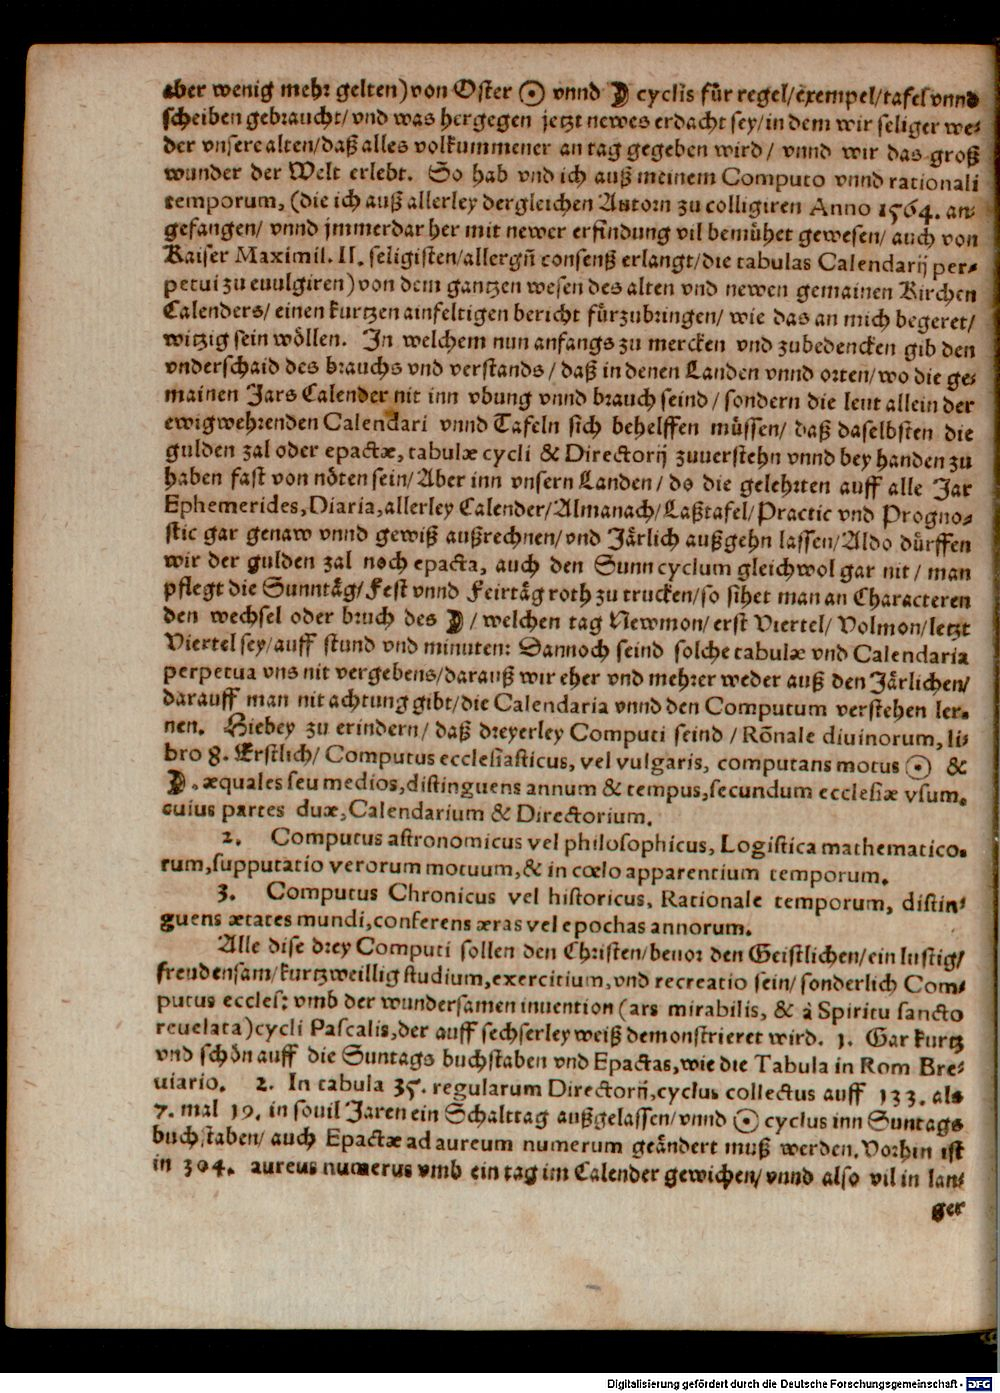 aber wenig mehr gelten) von Oster ☉ vnnd ☽ cyclis für regel/ exempel/ tafel vnnd
scheiben gebraucht/ vnd was hergegen jetzt newes erdacht sey/ in dem wir seliger we-
der vnsere alten/ daß alles volkummener an tag gegeben wird/ vnnd wir das groß
wunder der Welt erlebt. So hab vnd ich auß meinem Computo vnnd rationali
temporum, (die ich auß allerley dergleichen Autorn zu colligiren Anno 1564. an-
gefangen/ vnnd jmmerdar her mit newer erfindung vil bemühet gewesen/ auch von
Kaiser Maximil. II. seligisten/ allergñ consenß erlangt/ die tabulas Calendarij per-
petui zu euulgiren) von dem gantzen wesen des alten vnd newen gemainen Kirchen
Calenders/ einen kurtzen ainfeltigen bericht fürzubringen/ wie das an mich begeret/
witzig sein wöllen. In welchem nun anfangs zu mercken vnd zubedencken gib den
vnderschaid des brauchs vnd verstands/ daß in denen Landen vnnd orten/ wo die ge-
mainen Jars Calender nit inn vbung vnnd brauch seind/ sondern die leut allein der
ewigwehrenden Calendari vnnd Tafeln sich behelffen müssen/ daß daselbsten die
gulden zal oder epactæ, tabulæ cycli & Directorij zuuerstehn vnnd bey handen zu
haben fast von nöten sein/ Aber inn vnsern Landen/ do die gelehrten auff alle Jar
Ephemerides, Diaria, allerley Calender/ Almanach/ Laßtafel/ Practic vnd Progno-
stic gar genaw vnnd gewiß außrechnen/ vnd Järlich außgehn lassen/ Aldo dürffen
wir der gulden zal noch epacta, auch den Sunn cyclum gleichwol gar nit/ man
pflegt die Sunntäg/ Fest vnnd Feirtäg roth zu trucken/ so sihet man an Characteren
den wechsel oder bruch des ☽/ welchen tag Newmon/ erst Viertel/ Volmon/ letzt
Viertel sey/ auff stund vnd minuten: Dannoch seind solche tabulæ vnd Calendaria
perpetua vns nit vergebens/ darauß wir eher vnd mehrer weder auß den Järlichen/
darauff man nit achtung gibt/ die Calendaria vnnd den Computum verstehen ler-
nen. Hiebey zu erindern/ daß dreyerley Computi seind/ Rõnale diuinorum, li-
bro 8. Erstlich/ Computus ecclesiasticus, vel vulgaris, computans motus ☉ &
☽. æquales seu medios, distinguens annum & tempus, secundum ecclesiæ vsum.
cuius partes duæ, Calendarium & Directorium.
2. Computus astronomicus vel philosophicus, Logistica mathematico-
rum, supputatio verorum motuum, & in cœlo apparentium temporum.
3. Computus Chronicus vel historicus, Rationale temporum, distin-
guens ætates mundi, conferens æras vel epochas annorum.
Alle dise drey Computi sollen den Christen/ beuor den Geistlichen/ ein lustig/
freudensam/ kurtzweillig studium, exercitium, vnd recreatio sein/ sonderlich Com-
putus eccles: vmb der wundersamen inuention (ars mirabilis, & à Spiritu sancto
reuelata) cycli Pascalis, der auff sechserley weiß demonstrieret wird. 1. Gar kurtz
vnd schön auff die Suntags buchstaben vnd Epactas, wie die Tabula in Rom Bre-
uiario. 2. In tabula 35. regularum Directorij, cyclus collectus auff 133. als
7. mal 19. in souil Jaren ein Schalttag außgelassen/ vnnd ☉ cyclus inn Suntags
buchstaben/ auch Epactæ ad aureum numerum geändert muß werden. Vorhin ist
in 304. aureus numerus vmb ein tag im Calender gewichen/ vnnd also vil in lan-
ger
Digitalisierung gefördert durch die Deutsche Forschungsgemeinschaft - DFG